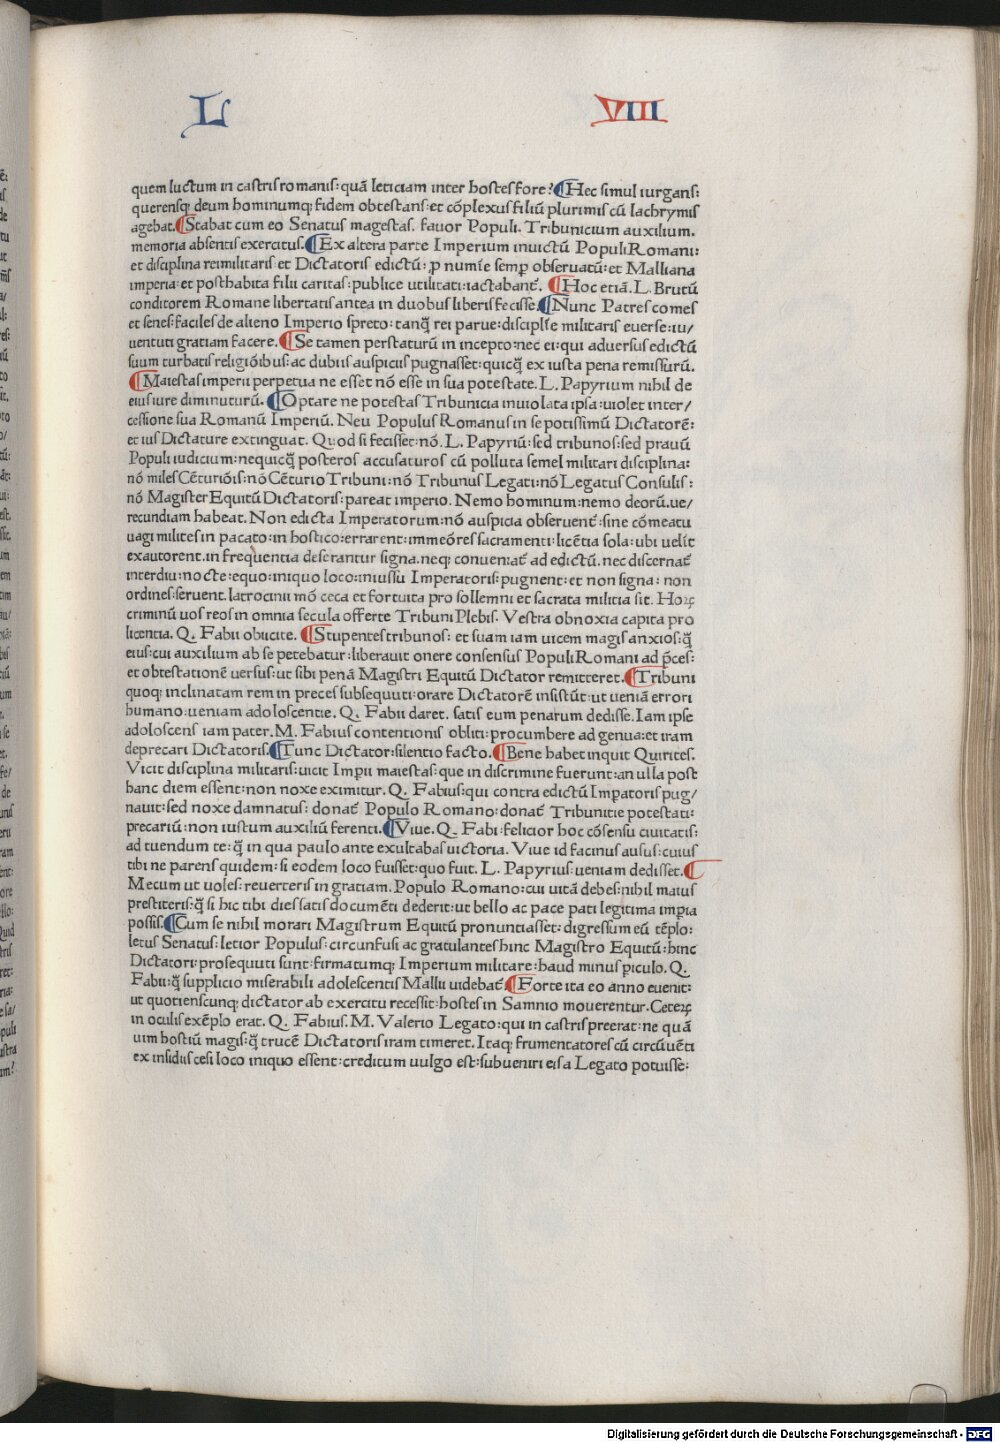 L VIII
quem luctum in castris romanis: quã leticiam inter hostes fore? ¶Hec simul iurgans:
querensq; deum hominumq; fidem obtestans: et cõplexus filiũ plurimis cũ lachrymis
agebat. ¶Stabat cum eo Senatus magestas. fauor Populi. Tribunicium auxilium.
memoria absentis exercitus. ¶Ex altera parte Imperium inuictũ Populi Romani:
et disciplina rei militaris: et Dictatoris edictũ: ꝓ numĩe semꝑ obseruatũ: et Malliana
imperia: et posthabita filii caritas: publice utilitati: iactabant̃. ¶Hoc etiã. L. Brutũ
conditorem Romane libertatis antea in duobus liberis fecisse. ¶Nunc Patres comes
et senes: faciles de alieno Imperio spreto: tanq̃ rei parue: discipl̃ie militaris euerse: iu/
uentuti gratiam facere. ¶Se tamen perstaturũ in incepto: nec ei: qui aduersus edictũ
suum turbatis religiõibus: ac dubiis auspiciis pugnasset: quicq̃ ex iusta pena remissurũ.
¶Maiestas imperii perpetua ne esset nõ esse in sua potestate. L. Papyrium nihil de
eius iure diminuturũ. ¶Optare ne potestas Tribunicia inuiolata ipsa: uiolet inter/
cessione sua Romanũ Imperiũ. Neu Populus Romanus in se potissimũ Dictatorẽ:
et ius Dictature extinguat. Quod si fecisset: nõ. L. Papyriũ: sed tribunos: sed prauũ
Populi iudicium: nequicq̃ posteros accusaturos cũ polluta semel militari disciplina:
nõ miles Cẽturiõis: nõ Cẽturio Tribuni: nõ Tribunus Legati: nõ Legatus Consulis:
nõ Magister Equitũ Dictatoris: pareat imperio. Nemo hominum: nemo deorũ. ue/
recundiam habeat. Non edicta Imperatorum: nõ auspicia obseruent̃: sine cõmeatu
uagi milites in pacato: in hostico: errarent: immeõres sacramenti: licẽtia sola: ubi uelit̃
exautorent. in frequentia deserantur signa. neq; conueniat̃ ad edictũ. nec discernat̃
interdiu: nocte: equo: iniquo loco: iniussu Imperatoris: pugnent: et non signa: non
ordines: seruent. latrocinii mõ ceca et fortuita pro sollemni et sacrata militia sit. Hoꝝ
criminũ uos reos in omnia secula offerte Tribuni Plebis. Vestra obnoxia capita pro
licentia. Q. Fabii obiicite. ¶Stupentes tribunos: et suam iam uicem magis anxios: q̃
eius: cui auxilium ab se petebatur: liberauit onere consensus Populi Romani ad p̃ces:
et obtestationẽ uersus: ut sibi penã Magistri Equitũ Dictator remitteret. ¶Tribuni
quoq; inclinatam rem in preces subsequuti: orare Dictatorẽ insistũt: ut ueniã errori
humano: ueniam adoloscentie. Q. Fabii daret. satis eum penarum dedisse. Iam ipse
adoloscens iam pater. M. Fabius contentionis obliti: procumbere ad genua: et iram
deprecari Dictatoris. ¶Tunc Dictator: silentio facto. ¶Bene habet inquit Quirites.
Vicit disciplina militaris: uicit Imꝑii maiestas: que in discrimine fuerunt: an ulla post
hanc diem essent: non noxe eximitur. Q. Fabius: qui contra edictũ Imꝑatoris pug/
nauit: sed noxe damnatus: donat̃ Populo Romano: donat̃ Tribunitie potestati:
precariũ: non iustum auxiliũ ferenti. ¶Viue. Q. Fabi: felicior hoc cõsensu ciuitatis:
ad tuendum te: q̃ in qua paulo ante exultabas uictoria. Viue id facinus ausus: cuius
tibi ne parens quidem: si eodem loco fuisset: quo fuit. L. Papyrius: ueniam dedisset. ¶
Mecum ut uoles: reuerteris in gratiam. Populo Romano: cui uitã debes: nihil maius
prestiteris: q̃ si hic tibi dies satis documẽti dederit: ut bello ac pace pati legitima imꝑia
possis. ¶Cum se nihil morari Magistrum Equitũ pronuntiasset: digressum eũ tẽplo:
letus Senatus: letior Populus: circunfusi ac gratulantes hinc Magistro Equitũ: hinc
Dictatori: prosequuti sunt: firmatumq; Imperium militare: haud minus ꝑiculo. Q.
Fabii: q̃ supplicio miserabili adolescentis Mallii uidebat̃. ¶Forte ita eo anno euenit:
ut quotienscunq; dictator ab exercitu recessit: hostes in Samnio mouerentur. Ceteꝝ
in oculis exẽplo erat. Q. Fabius. M. Valerio Legato: qui in castris preerat: ne quã
uim hostiũ magis: q̃ trucẽ Dictatoris iram timeret. Itaq; frumentatores cũ circũuẽti
ex insidiis cesi loco iniquo essent: creditum uulgo est: subueniri eis a Legato potuisse:
Digitalisierung gefördert durch die Deutsche Forschungsgemeinschaft - DFG